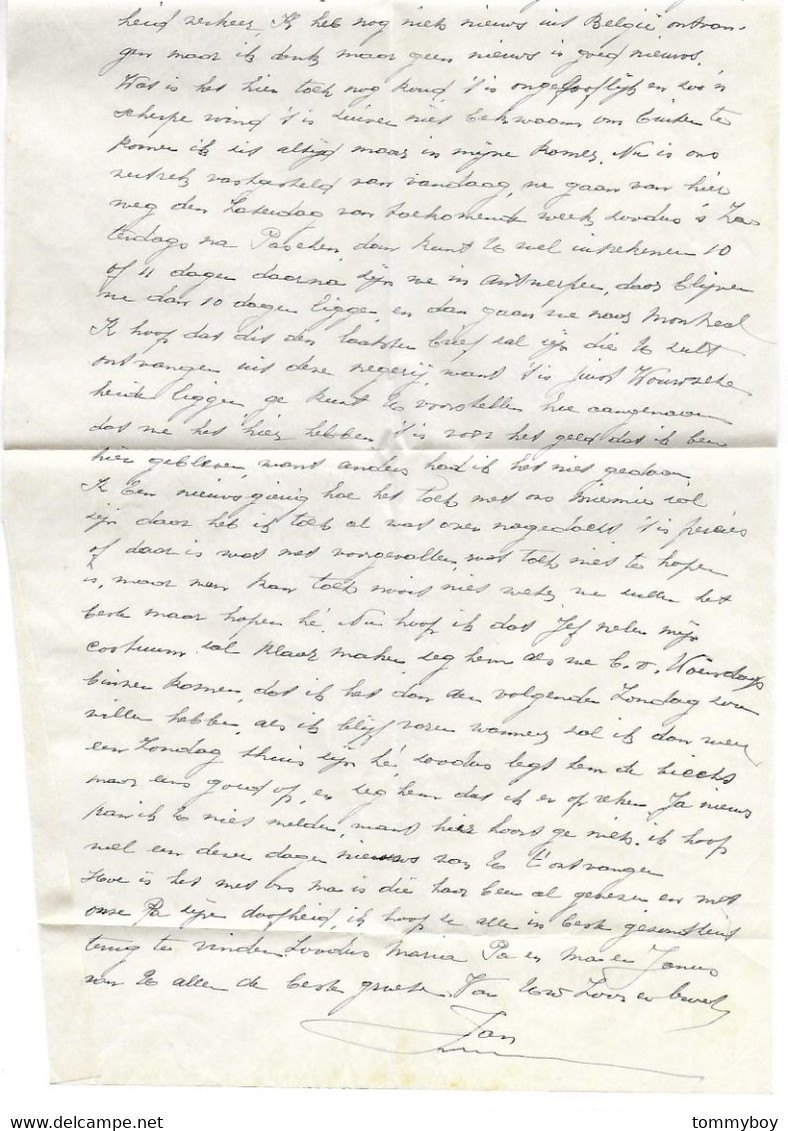 heid verkeer. Ik heb nog niets nieuws uit België ontvan-
gen maar ik denk maar geen nieuws is goed nieuws.
Wat is het hier toch nog koud 't is ongelooflijk en zoo'n
scherpe wind 't is zuiver niet bekwaam om buiten te
komen ik zit altijd maar in mijne kamer. Nu is ons
vertrek vastgesteld van vandaag, we gaan van hier
weg den Zaterdag van toekomende week, zoodus 's Za-
terdags na Paschen, dan kunt U wel inrekenen 10
of 11 dagen daarna zijn we in Antwerpen, daar blijven
we dan 10 dagen liggen, en dan gaan we naar Montreal
Ik hoop dat dit den laatsten brief zal zijn die U zult
ontvangen uit deze negerij, want 't is juist
heide liggen ge kunt U voorstellen hoe aangenaam
dat we het hier hebben 't is voor het geld dat ik ben
hier gebleven, want anders had ik het niet gedaan
Ik ben nieuwsgierig hoe het toch met ons Miemie zal
zijn daar heb ik toch al wat over nagedacht 't is precies
of daar is wat met voorgevallen, wat toch niet te hopen
is, maar men kan toch nooit niet weten we zullen het
beste maar hopen hé. Nu hoop ik dat Jef Nelen mijn
costuum zal klaar maken zeg hem als we b.v. Woensdags
binnen komen, dat ik het dan den volgenden Zondag zou
willen hebben, als ik blijf varen wanneer zal ik dan weer
een Zondag thuis zijn hé, zoodus legt hem de
maar eens goed op, en zeg hem dat ik er op reken. Ja nieuws
kan ik U niet melden, want hier hoort ge niets. ik hoop
wel een dezer dagen nieuws van U t'ontvangen
Hoe is het met ons ma is die haar been al genezen en met
onze Pa zijn doofheid, ik hoop U allen in beste gezondheid
terug te vinden. Zoodus Maria Pa en Ma en Janus
van U allen de beste groeten. Van Uw Zoon en broer,
Jan
tommyboy